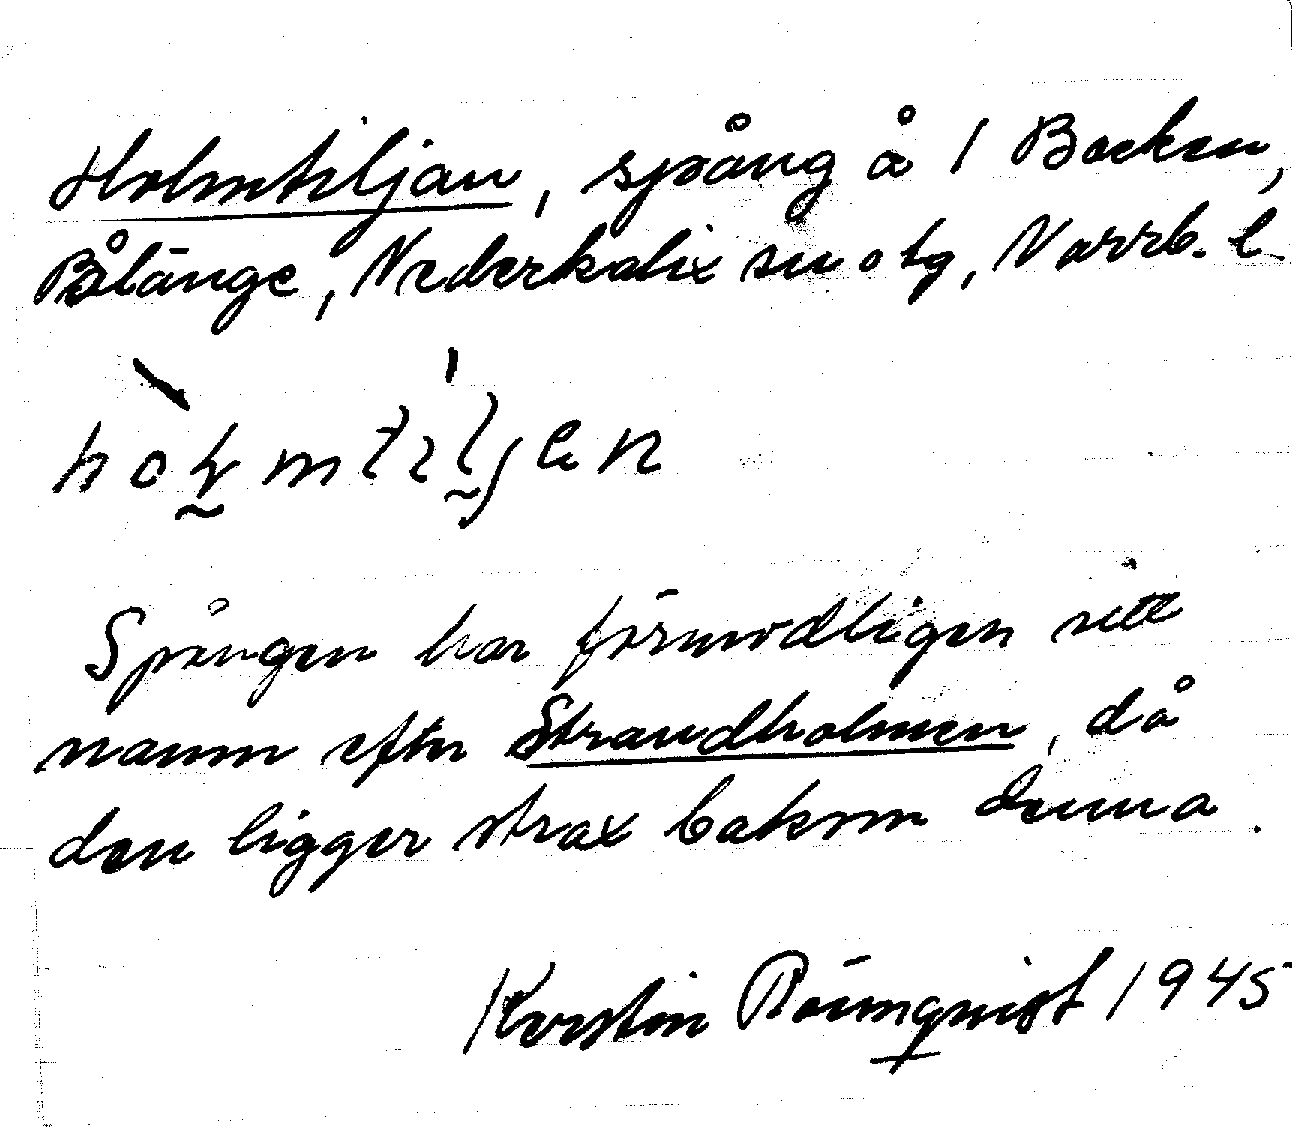 Holmtiljan, spång å 1 Backen,
Bålänge, Nederkalix sn o tg, Norrb. l
Spången har förmodligen sett
namn efter Strandholmen, då
den ligger strax bakom denna.
Kerstin Römqvist 1945